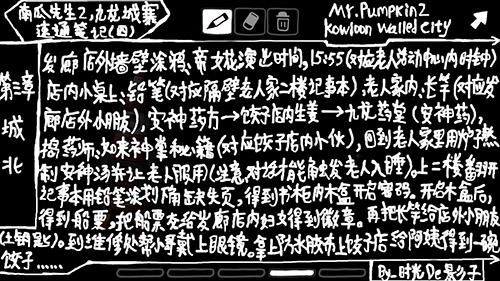 南瓜先生2,九龙城寨
速通笔记(四)
Mr.Pumpkin2
Kowloon Walled City
第三章
城北
发廊店外墙壁涂鸦、帝女花演出时间。15:55(对应老人劳动中心内时钟)
店内小桌上、铅笔(对应隔壁老人家二楼记事本)老人家内、长竿(对应发
廊店外小朋友),安神药方→饺子店内生姜→九龙药堂(安神药),
捣药师、如来神掌秘籍(对应饺子店内小伙),回到老人家里用炉子熬
制安神汤并让老人服用(注意,对话才能触发老人入睡)。上二楼翻开
记事本用铅笔涂划下面缺失页,得到书柜内木盒开启密码。开启木盒后,
得到船票。把船票先给发廊店内妇女得到徽章。再把长竿给店外小朋友
(土钥匙)。到维修处帮小哥戴上眼镜。拿上防水胶布上饺子店给阿姨得到一碗
饺子……
By_时光De影子